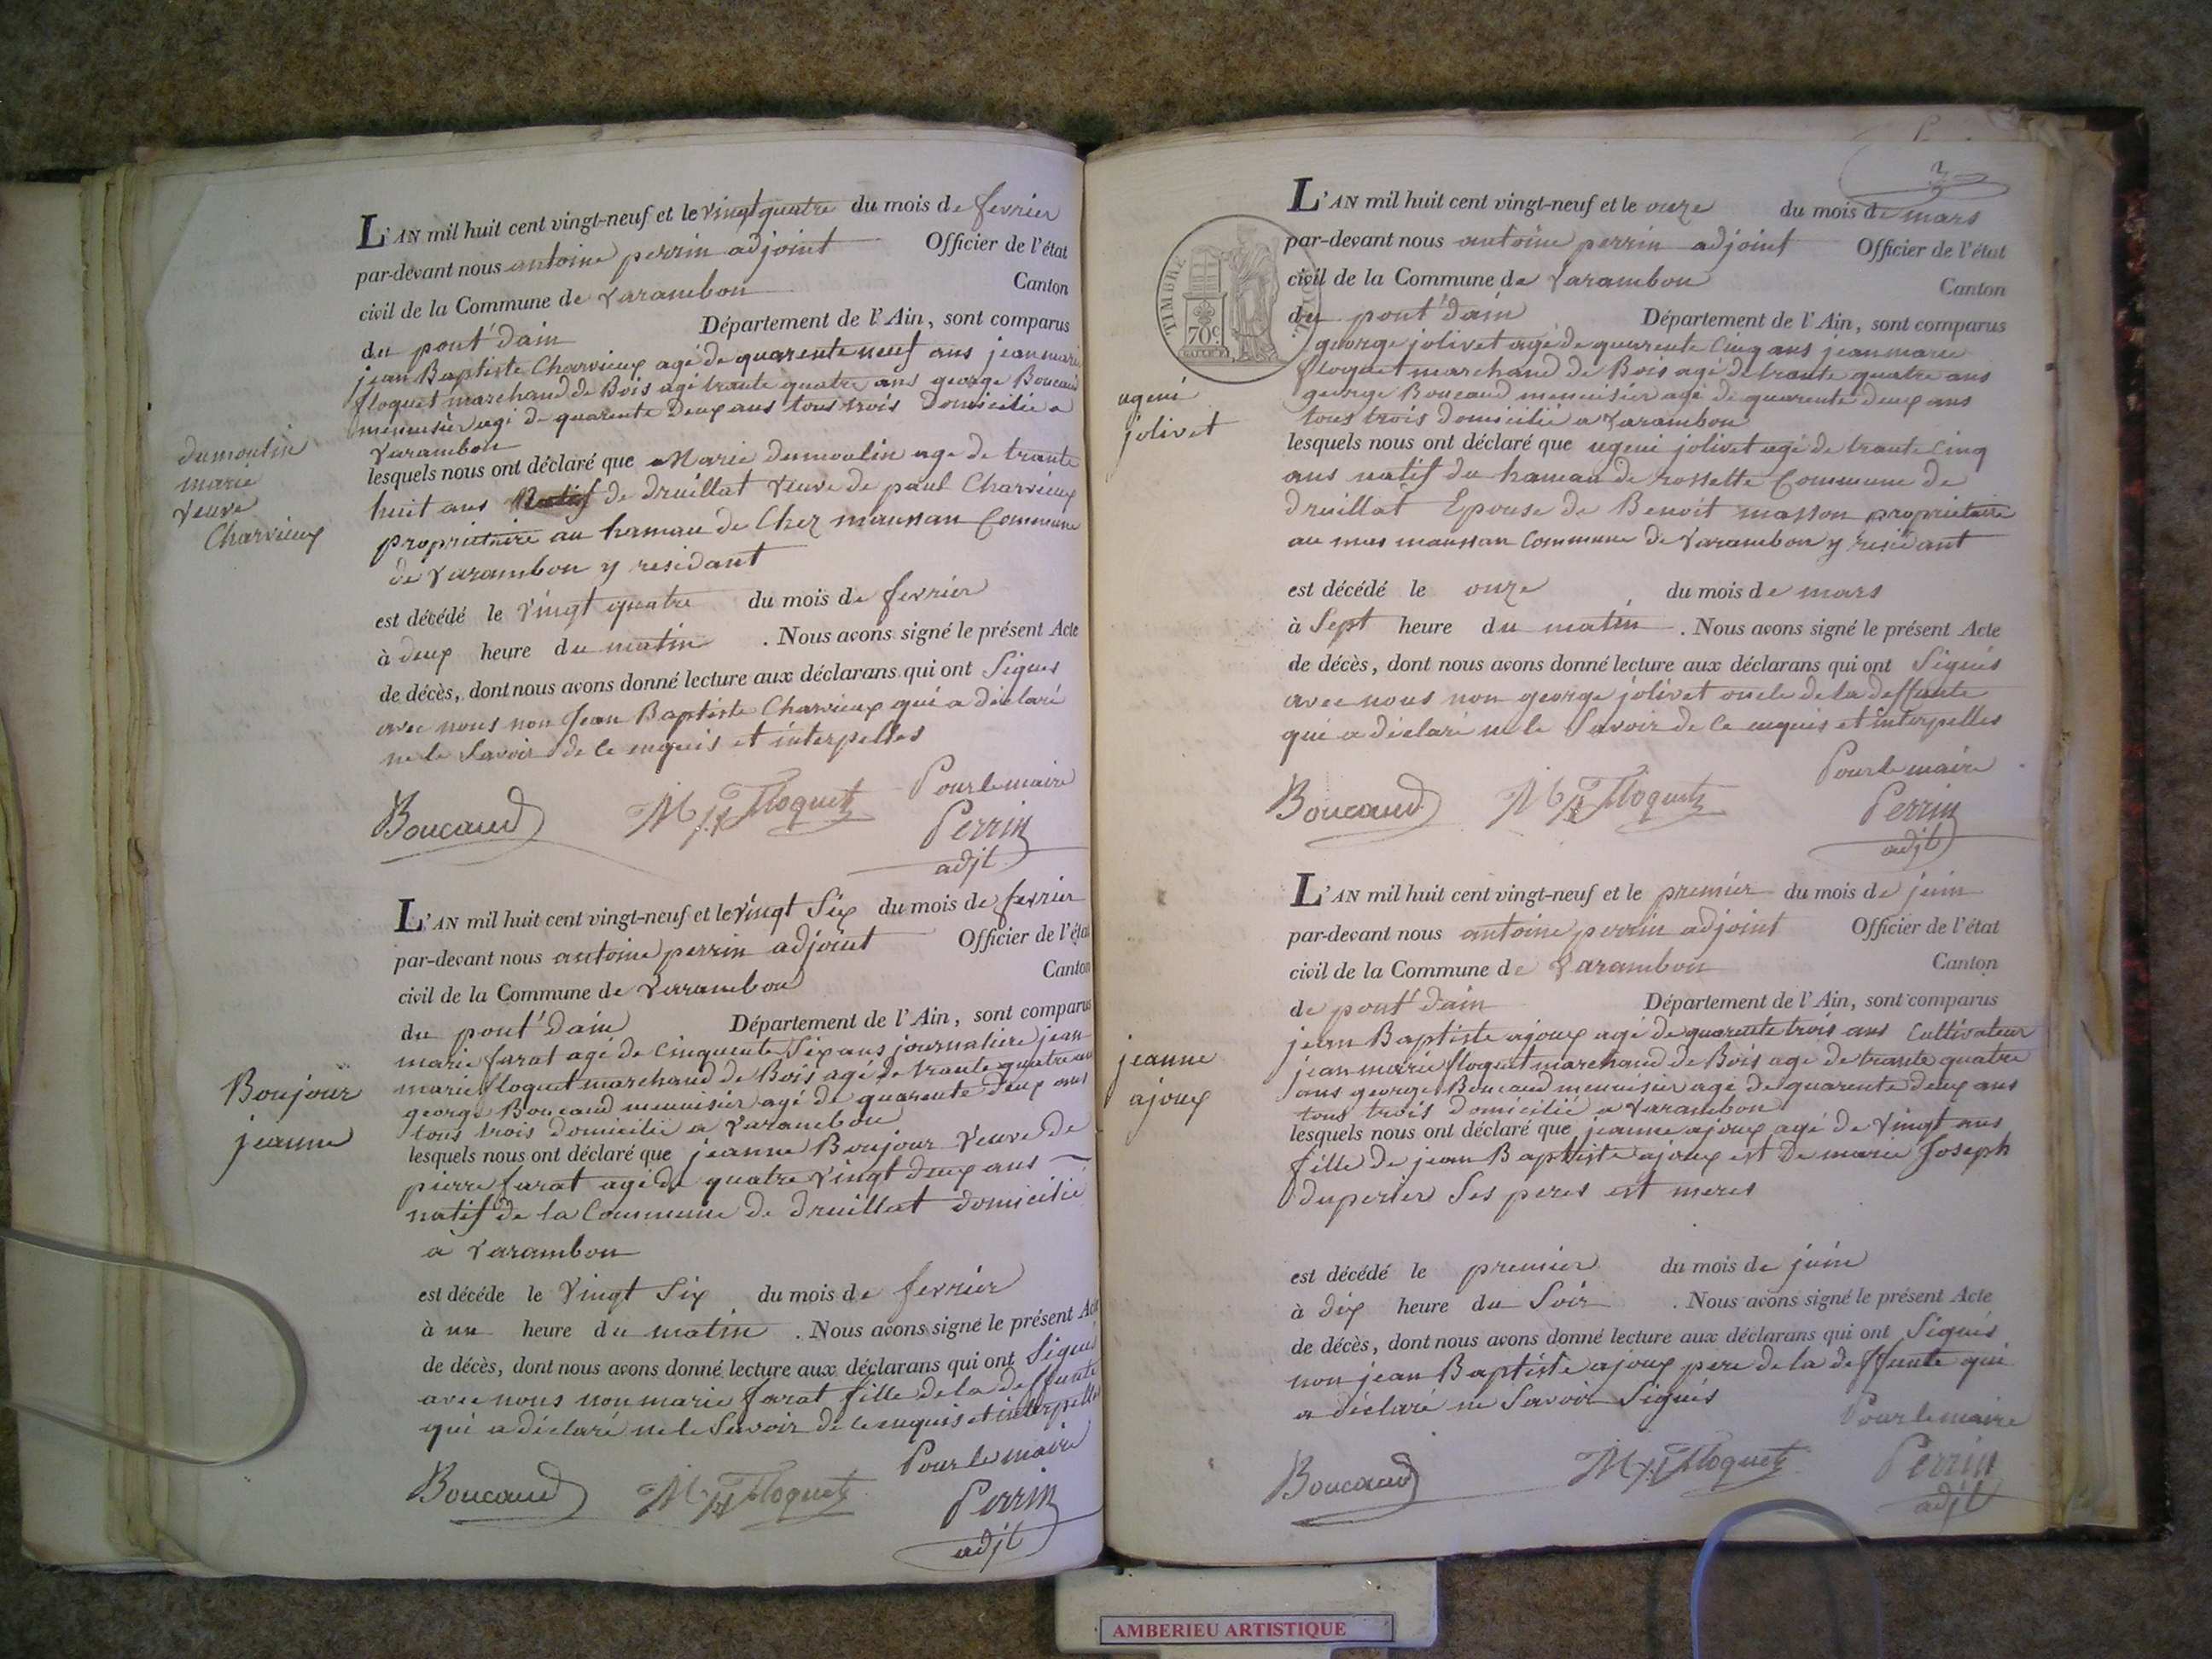 L'AN mil huit cent vingt-neuf et le vingt quatre du mois de fevrier
par-devant nous antoine perrin adjoint Officier de l'état
civil de la Commune de Varambon Canton
du pont d'ain Département de l'Ain, sont comparus
jean Baptiste Charvieux agé de quarente neuf ans jean marie
floquet marchand de Bois agé trante quatre ans george Boucaud
menuisier agé de quarente deux ans tous trois Domicilié a
Varambon
dumoulin
marie
veuve
Charvieux
lesquels nous ont déclaré que Marie dumoulin age de trante
huit ans Natif de druillat veuve de paul Charvieux
proprietaire au hameau de Chez maussan Commune
de Varambon y residant
est décédé le vingt quatre du mois de fevrier
à deux heure du matin . Nous avons signé le présent Acte
de décès, dont nous avons donné lecture aux déclarans qui ont Signes
avec nous non Jean Baptiste Charvieux qui a déclaré
ne le Savoir de ce enquis et interpelles
Pour le maire
Boucaud M Floquet Perrin
adjt
L'AN mil huit cent vingt-neuf et le vingt Six du mois de fevrier
par-devant nous antoine perrin adjoint Officier de l'état
civil de la Commune de Varambon Canton
du pont d'ain Département de l'Ain, sont comparus
marie farat agé de Cinquente Six ans journaliere jean
marie floquet marchand de Bois agé de trante quatre ans
george Boucaud menuisier agé de quarente deux ans
tous trois domicilié a Varambon
Boujour
jeanne
lesquels nous ont déclaré que jeanne Boujour Veuve de
pierre farat agé de quatre vingt deux ans
natif de la Commune de druillat domicilié
a Varambon
est décédé le Vingt Six du mois de fevrier
à un heure du matin . Nous avons signé le présent Acte
de décès, dont nous avons donné lecture aux déclarans qui ont Signés
avec nous non marie farat fille de la deffunte
qui a déclaré ne le Savoir de ce enquis et interpelles
Pour le maire
Boucaud M Floquet Perrin
adjt
3
L'AN mil huit cent vingt-neuf et le onze du mois de mars
par-devant nous antoine perrin adjoint Officier de l'état
civil de la Commune de Varambon Canton
du pont d'ain Département de l'Ain, sont comparus
TIMBRE
70 c.
george jolivet agé de quarente Cinq ans jean marie
floquet marchand de Bois agé de trante quatre ans
george Boucaud menuisier agé de quarente deux ans
tous trois domicilié a Varambon
ugeni
jolivet
lesquels nous ont déclaré que ugeni jolivet agé de trante Cinq
ans natif du hameau de rossette Commune de
druillat Epouse de Benoit masson propriétaire
au mas maussan Commune de Varambon y residant
est décédé le onze du mois de mars
à Sept heure du matin . Nous avons signé le présent Acte
de décès, dont nous avons donné lecture aux déclarans qui ont Signés
avec nous non george jolivet oncle de la deffunte
qui a déclaré ne le Savoir de ce enquis et interpelles
Pour le maire
Boucaud M Floquet Perrin
adjt
L'AN mil huit cent vingt-neuf et le premier du mois de juin
par-devant nous antoine perrin adjoint Officier de l'état
civil de la Commune de Varambon Canton
de pont d'ain Département de l'Ain, sont comparus
jean Baptiste ajoux agé de quarente trois ans Cultivateur
jean marie floquet marchand de Bois age de trante quatre
ans george Boucaud menuisier agé de quarente deux ans
tous trois domicilié a Varambon
jeanne
ajoux
lesquels nous ont déclaré que jeanne ajoux agé de Vingt ans
fille de jean Baptiste ajoux est De marie Joseph
duperier Ses peres est meres
est décédé le premier du mois de juin
à dix heure du Soir . Nous avons signé le présent Acte
de décès, dont nous avons donné lecture aux déclarans qui ont Signés
non jean Baptiste ajoux pere de la deffunte qui
a déclaré ne Savoir Signés
Pour le maire
Boucaud M Floquet Perrin
adjt
AMBERIEU ARTISTIQUE